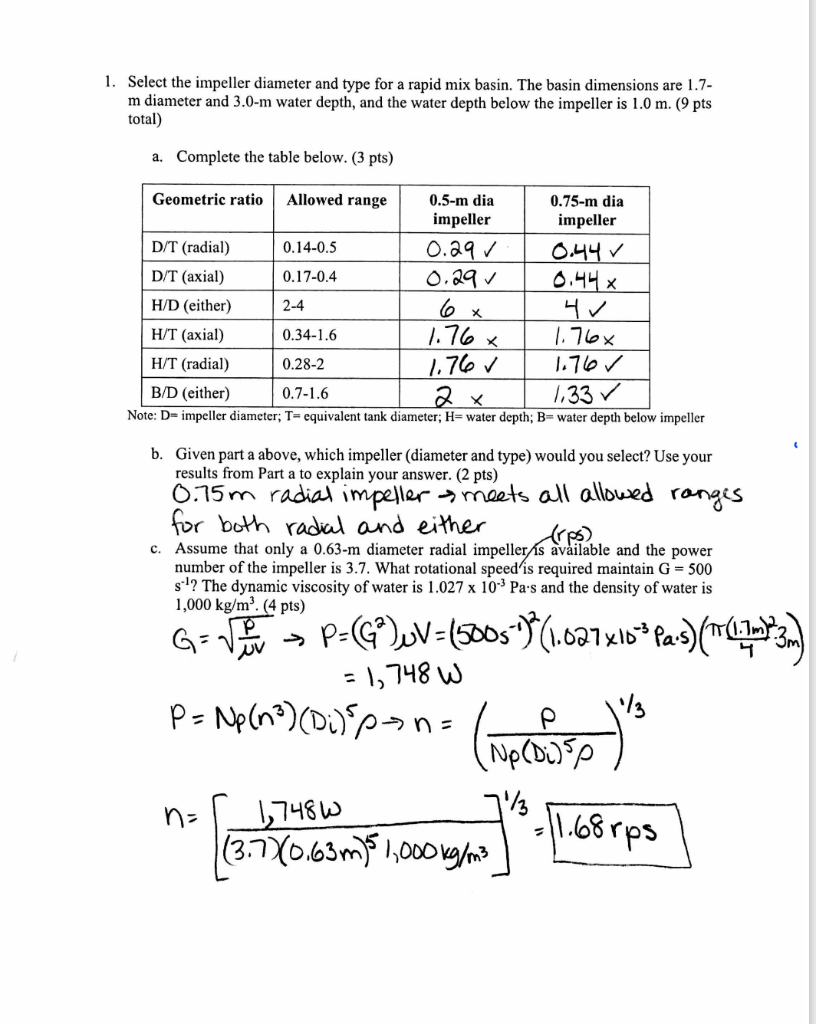 1. Select the impeller diameter and type for a rapid mix basin. The basin dimensions are 1.7-
m diameter and 3.0-m water depth, and the water depth below the impeller is 1.0 m. (9 pts
total)
a. Complete the table below. (3 pts)
Geometric ratio Allowed range 0.5-m dia impeller 0.75-m dia impeller
D/T (radial) 0.14-0.5 0.29 ✓ 0.44 ✓
D/T (axial) 0.17-0.4 0.29 ✓ 0.44 x
H/D (either) 2-4 6 x 4 ✓
H/T (axial) 0.34-1.6 1.76 x 1.76 x
H/T (radial) 0.28-2 1.76 ✓ 1.76 ✓
B/D (either) 0.7-1.6 2 x 1.33 ✓
Note: D= impeller diameter; T= equivalent tank diameter; H= water depth; B= water depth below impeller
b. Given part a above, which impeller (diameter and type) would you select? Use your
results from Part a to explain your answer. (2 pts)
0.75m radial impeller → meets all allowed ranges
for both radial and either
(rps)
c. Assume that only a 0.63-m diameter radial impeller is available and the power
number of the impeller is 3.7. What rotational speed is required maintain G = 500
s⁻¹? The dynamic viscosity of water is 1.027 x 10⁻³ Pa·s and the density of water is
1,000 kg/m³. (4 pts)
G = √(P/μV) → P = (G²)μV = (500s⁻¹)²(1.027x10⁻³ Pa·s)(π(1.7m)²/4 3m)
= 1,748 W
P = Np(n³)(Di)⁵ρ → n = (P/Np(Di)⁵ρ)^1/3
n = [1,748W/(3.7)(0.63m)⁵ 1,000 kg/m³]^1/3 = 1.68 rps